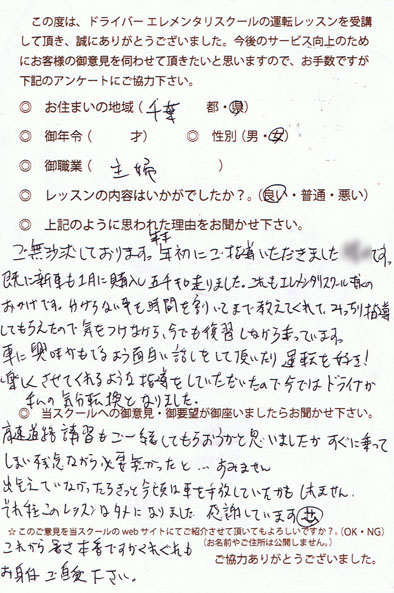 この度は、ドライバー エレメンタリスクールの運転レッスンを受講
して頂き、誠にありがとうございました。今後のサービス向上のため
にお客様の御意見を伺わせて頂きたいと思いますので、お手数ですが
下記のアンケートにご協力下さい。
◎ お住まいの地域(千葉 都・県)
◎ 御年令( 才) ◎ 性別(男・女)
◎ 御職業( 主婦 )
◎ レッスンの内容はいかがでしたか?。(良い・普通・悪い)
◎ 上記のように思われた理由をお聞かせ下さい。
ご無沙汰しております。年末年初にご指導いただきました です。
既に新車も1月に購入し五千キロ走りました。これもエレメンタリスクール様の
おかげです。分からない事も時間を割いてまで教えてくれて、みっちり指導
してもらえたので気をつけながら、今でも復習しながら乗っています。
車に興味がもてるよう面白い話しをして頂いたり運転を好き!
楽しくさせてくれるような指導をしていただいたので今ではドライブが
私の気分転換となりました。
◎ 当スクールへの御意見・御要望が御座いましたらお聞かせ下さい。
高速道路講習もご一緒してもらおうかと思いましたがすぐに乗って
しまい残念ながら必要無かったと…すみません
出会えていなかったらきっと今頃は車を手放していたかもしれません。
それ程このレッスンは力になりました。感謝しています
☆このご意見を当スクールのwebサイトにてご紹介させて頂いてもよろしいですか?。(OK・NG)
(お名前やご住所は公開しません。)
これから暑さ本番ですがくれぐれも
ご協力ありがとうございました。
お身体ご自愛下さい。